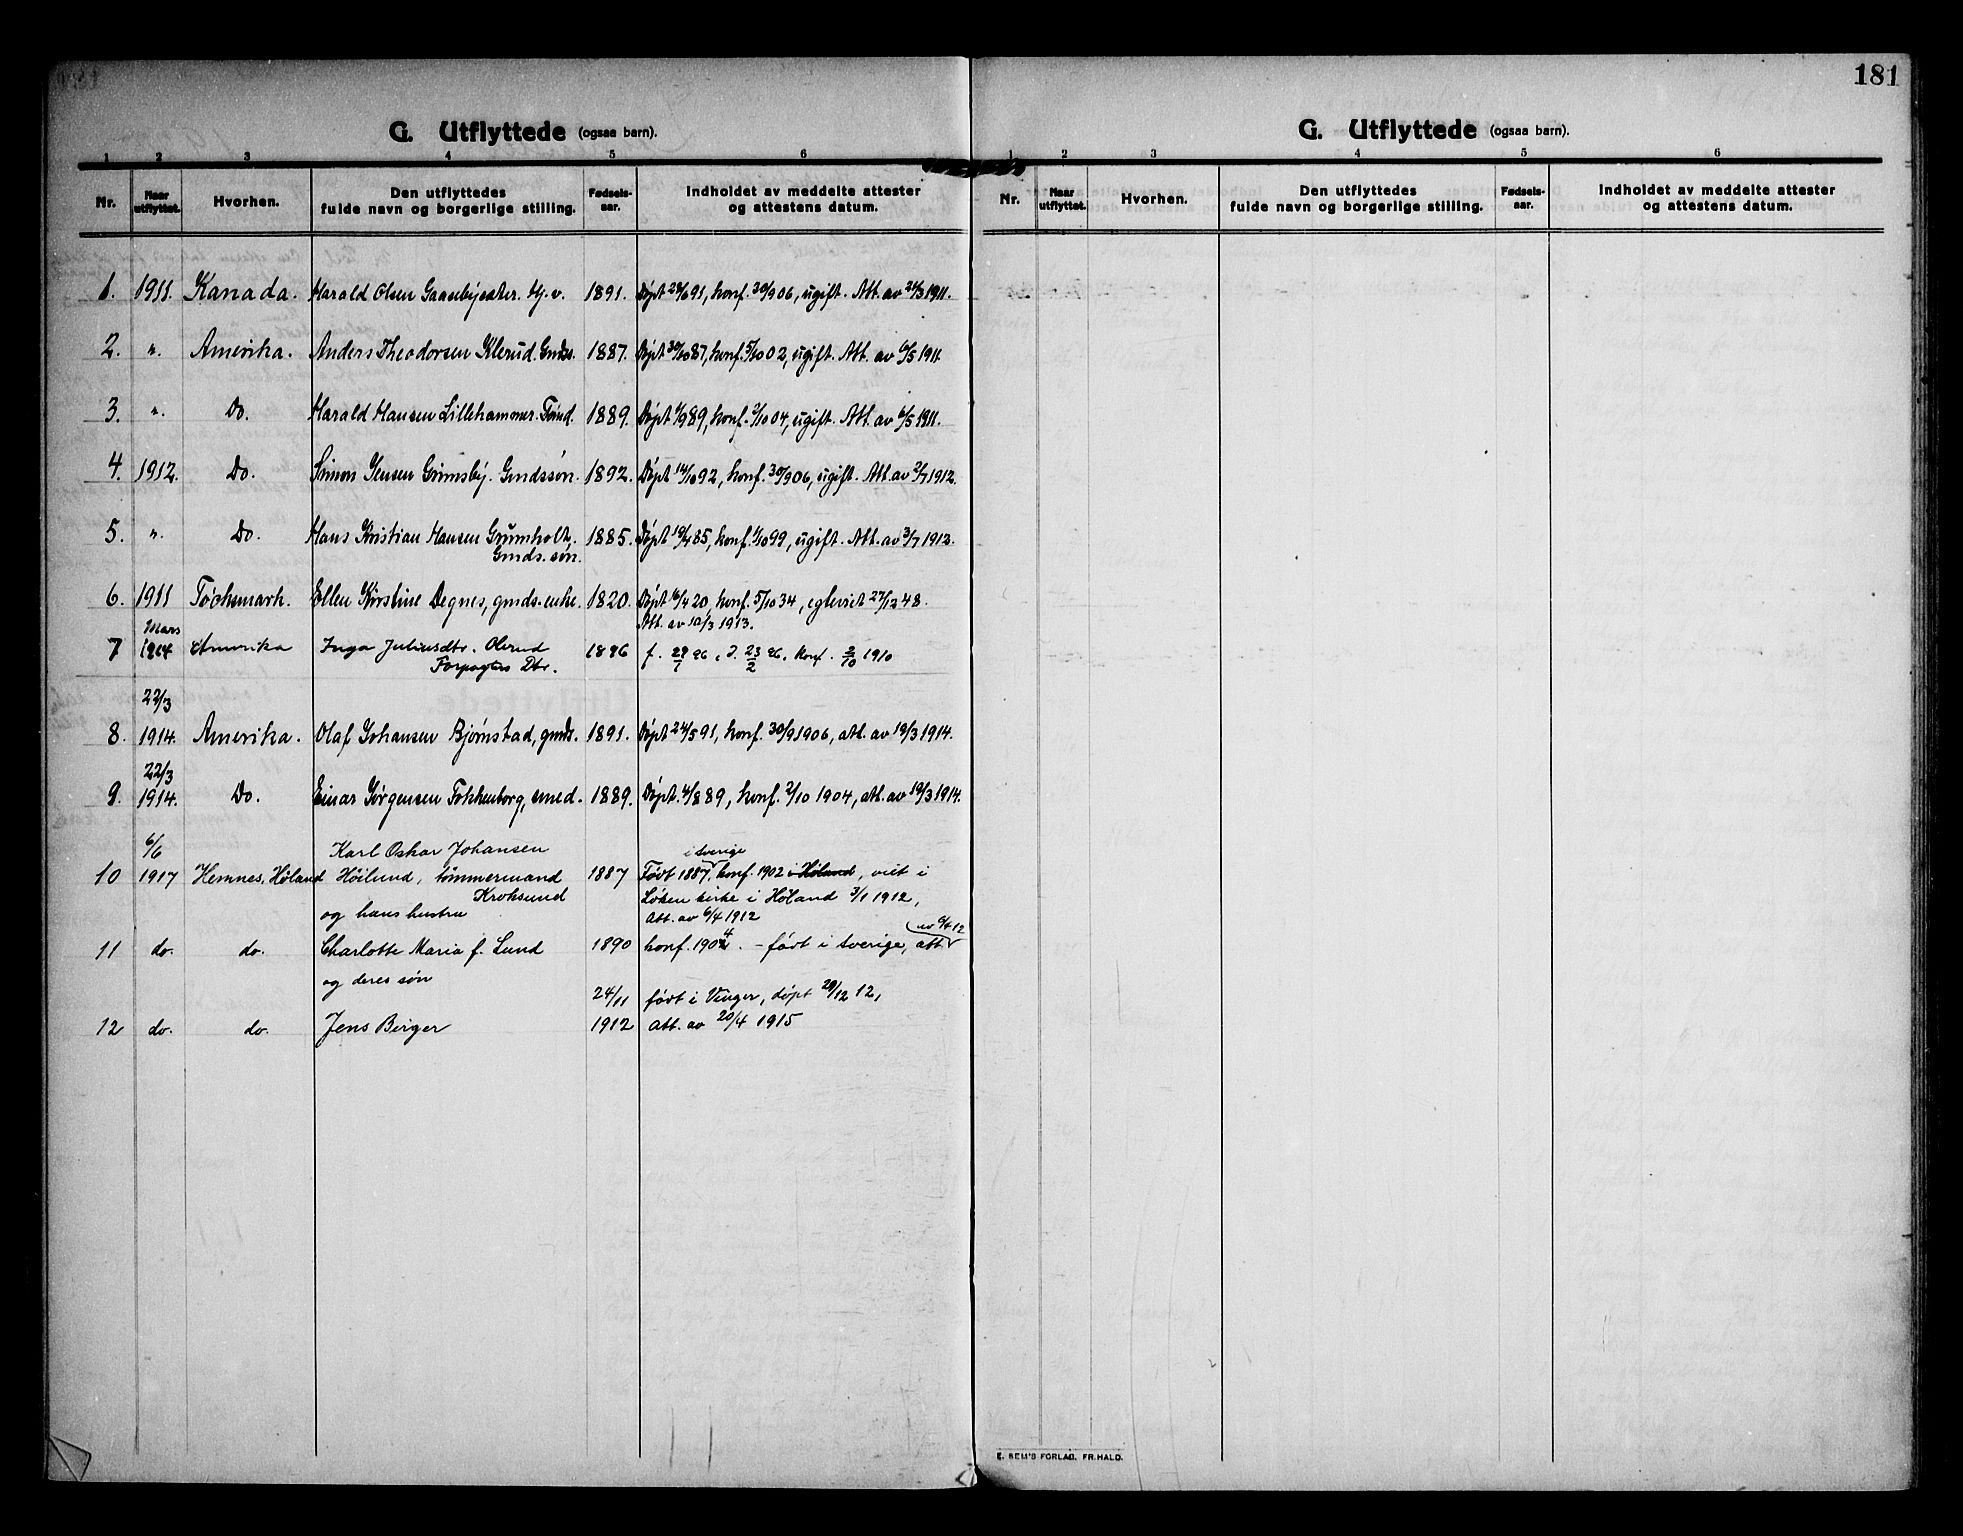 181
G. Utflyttede (ogsaa barn).
1 2 3 4 5 6
Nr. Naar utflyttet. Hvorhen. Den utflyttedes fulde navn og borgerlige stilling. Fødsels- aar. Indholdet av meddelte attester og attestens datum.
1. 1911. Kanada. Harald Olsen Gaasebyester. Hj. v. 1891. Døpt 28/6 91, konf. 30/9 06, ugift. Att. av 24/3 1911.
2. ". Amerika. Anders Theodorsen Klerud. Gmds. 1887. Døpt 30/10 87, konf. 5/10 02, ugift. Att. av 6/5 1911.
3. ". Do. Harald Hansen Lillehammer. Tømd. 1889. Døpt 1/9 89, konf. 2/10 04, ugift. Att. av 6/5 1911.
4. 1912. Do. Simon Jensen Grimsby. Gmdssøn. 1892. Døpt 14/10 92, konf. 30/9 06, ugift. Att. av 2/7 1912.
5. ". Do. Hans Kristian Hansen Grümholt, 1885. Døpt 19/4 85, konf. 1/10 99, ugift. Att. av 3/7 1912.
Gmds. søn.
6. 1911 Töcksmark. Ellen Kirstine Degnes, gmds. enke. 1820. Døpt 16/4 20, konf. 5/10 34, egteviet 27/12 48.
Att. av 10/3 1913.
Mars
7 1914 Amerika Inga Juliusdtr. Olerud 1896 f. 29/1 96, d. 23/2 96, konf. 2/10 1910
Forpagters Dtr.
22/3
8. 1914. Amerika. Olaf Johansen Bjørnstad, gmds. 1891. Døpt 24/5 91, konf. 30/9 1906, att. av 19/3 1914.
22/3
9. 1914. Do. Einar Jørgensen Fokkenborg, smed. 1889. Døpt. 4/8 89, konf. 2/10 1904, att. av 19/3 1914.
6/6 Karl Oskar Johansen i Sverige
10 1917 Hemnes, Høland Höilund, tømmermand 1887 Født 1887, konf. 1902 i Høland, viet i
Kroksund Løken kirke i Høland 3/1 1912,
og hans hustru Att. av 6/4 1912
av 6/4 12
11 do. do. Charlotte Maria f. Lund 1890 konf. 1904. - født i Sverige, att.
og deres søn
24/11 født i Vinger, døpt 29/12 12,
12 do. do. Jens Birger 1912 att. av 20/4 1915
G. Utflyttede (ogsaa barn).
1 2 3 4 5 6
Nr. Naar utflyttet. Hvorhen. Den utflyttedes fulde navn og borgerlige stilling. Fødsels- aar. Indholdet av meddelte attester og attestens datum.
E. SEM'S FORLAG. FR.HALD.